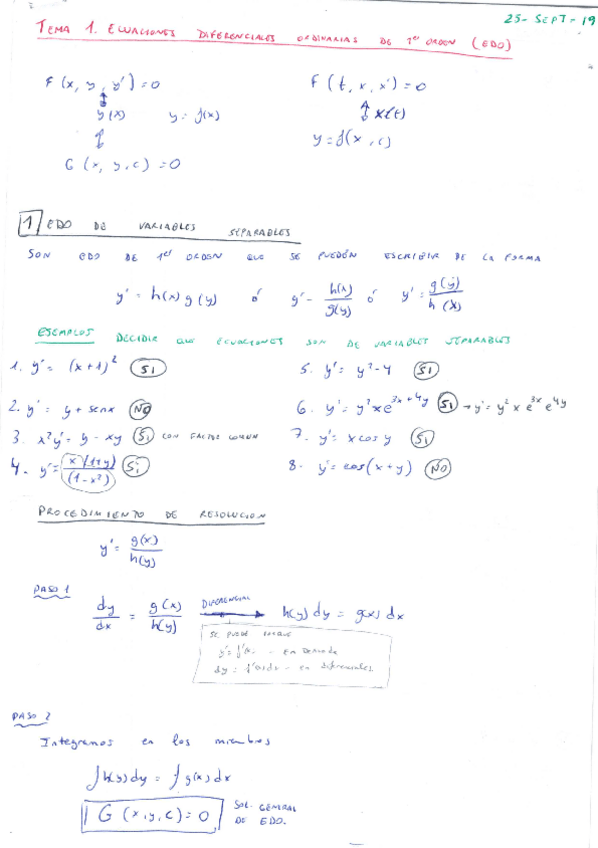 25-SEPT-19
TEMA 1. ECUACIONES DIFERENCIALES ORDINARIAS DE 1er ORDEN (EDO)
F(x, y, y') = 0
F(t, x, x') = 0
y(x) y = f(x)
x(t)
G(x, y, c) = 0
y = f(x, c)
1 EDO DE VARIABLES SEPARABLES
SON EDO DE 1er ORDEN QUE SE PUEDEN ESCRIBIR DE LA FORMA
y' = h(x) g(y) ó y' = h(x)/g(y) ó y' = g(y)/h(x)
EJEMPLOS DECIDIR QUE ECUACIONES SON DE VARIABLES SEPARABLES
1. y' = (x+1)² Si
5. y' = y²-4 Si
2. y' = y + senx NO
6. y' = y²xe^(3x+4y) Si → y' = y² x e^3x e^4y
3. x²y' = y - xy Si CON FACTOR COMUN
7. y' = x cos y Si
4. y' = x(1+y)/(1-x²) Si
8. y' = cos(x+y) NO
PROCEDIMIENTO DE RESOLUCION
y' = g(x)/h(y)
PASO 1
dy/dx = g(x)/h(y) DIFERENCIAL → h(y) dy = g(x) dx
SE PUEDE
- EN DERIVADA
dy = f'(x)dx - en diferenciales
PASO 2
Integramos en los miembros
∫h(y)dy = ∫g(x)dx
G(x,y,c) = 0 SOL. GENERAL
DE EDO.